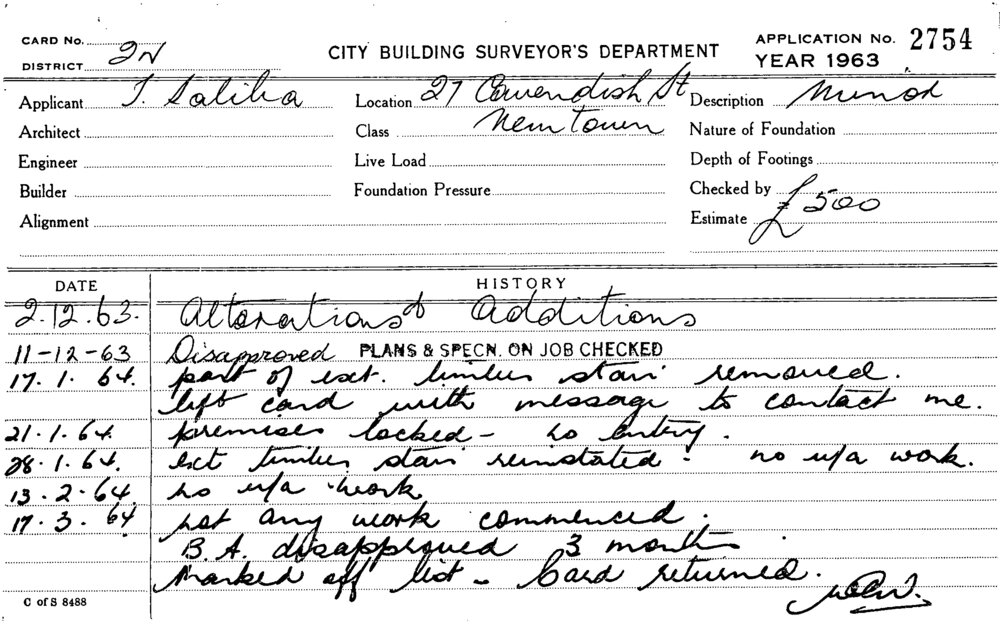 CARD No.
DISTRICT 2N
CITY BUILDING SURVEYOR'S DEPARTMENT
APPLICATION No. 2754
YEAR 1963
Applicant J. Saliba
Location 27 Cavendish St
Description Minor
Architect
Class Newtown
Nature of Foundation
Engineer
Live Load
Depth of Footings
Builder
Foundation Pressure
Checked by
Alignment
Estimate £500
DATE HISTORY
2.12.63. Alterations & Additions
11-12-63 Disapproved PLANS & SPECN. ON JOB CHECKED
17.1.64. part of ext. timber stair removed.
left card with message to contact me.
21.1.64. premises locked - no entry.
28.1.64. ext timber stair reinstated - no u/a work.
13.2.64. no u/a work
17.3.64 not any work commenced.
B.A. disapproved 3 months
Marked off list - Card returned.
C of S 8488